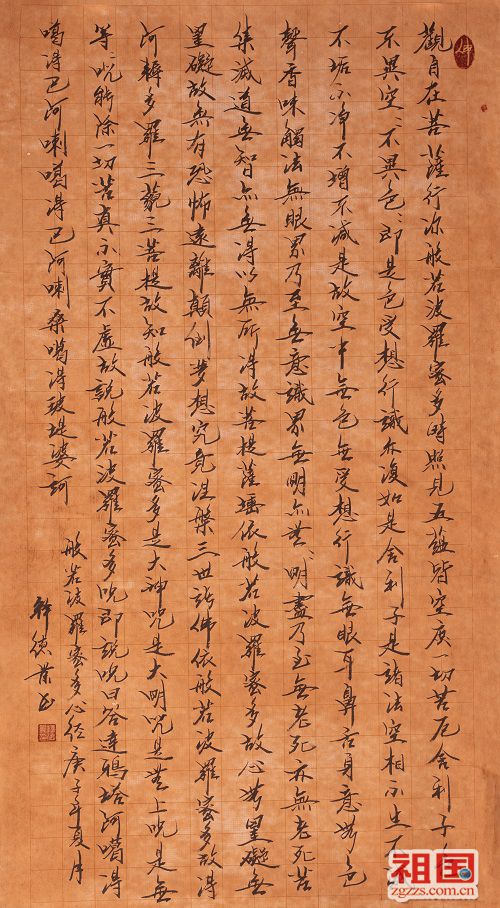 觀自在菩薩行深般若波羅蜜多時照見五蘊皆空度一切苦厄舍利子
不異空、不異色、即是色受想行識亦復如是舍利子是諸法空相不生不
不垢不净不增不減是故空中無色無受想行識無眼耳鼻舌身意無色
聲香味觸法無眼界乃至無意識界無明亦無、明盡乃至無老死亦無老死苦
集滅道無智亦無得以無所得故菩提薩埵依般若波羅蜜多故心無罣礙無
罣礙故無有恐怖遠離顛倒夢想究竟涅槃三世諸佛依般若波羅蜜多故得
阿耨多羅三藐三菩提故知般若波羅蜜多是大神咒是大明咒是無上咒是無
等、咒能除一切苦真不實不虛故說般若波羅蜜多咒即說咒曰答達鴉塔阿噶得
噶得巴阿喇噶得巴阿喇桑噶得玻堤婆訶
般若波羅蜜多心經庚子年夏月
韓德業
祖国
zgzzs.com.cn